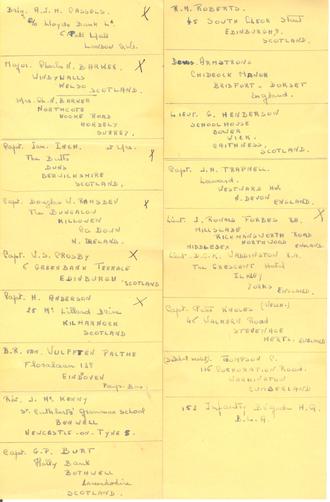 Brig. A.J.H. CASSELS. X
c/o Lloyds Bank Ltd.
6 Pall Mall
LONDON S.W.1.
Major. Charles N. BARKER. X
WINDYWALLS
KELSO SCOTLAND.
Mrs. Ch. N. BARKER
NORTHCOTE
HOOKE ROAD
HORSELY
SURREY.
Capt. Ian. INCH. X
The Butts
DUNS
BERWICKSHIRE
SCOTLAND.
Capt. Douglas W. RAMSDEN X
The DUNGALON
KILLOWEN
Co DOWN
N. IRELAND.
Capt. V.S. CROSBY X
6 GREENBANK TERRACE
EDINBURGH SCOTLAND
Capt. H. ANDERSON X
25 Mc Lelland Drive
KILMARNOCK
SCOTLAND
B.R. van. VULPPEN PALTHE
EINDOVEN
Pays-Bas.
Rev. J. Mc. KENNY
St. Cuthberts Grammar School
BENWELL
NEWCASTLE-ON-TYNE 5.
Capt. G.P. BURT
Holly Bank
BOTHWELL
Lanarkshire
SCOTLAND.
ROBERTS.
45 SOUTH CLERK Street
EDINBURGH 9.
SCOTLAND.
ARMSTRONG
CHIDEOCK MANOR
BRIDPORT. DORSET
England.
Lieut. G. HENDERSON
SCHOOLHOUSE
BOWER
WICK.
CAITHNESS,
SCOTLAND.
Capt. J.H. TRAPNELL.
WESTWARD HO.
N. DEVON
ENGLAND.
Lieut. J. RONALD FORBES X
HILLSLADE
RICKMANSWORTH ROAD
MIDDLESEX NORTHWOOD ENGLAND
Lieut. D.C.K. WADDINGTON R.A.
The CRESCENT Hotel
ILKLEY
YORKS ENGLAND.
Capt. Peter KNOLES
45 WALKERN ROAD
STEVENAGE
HERTS. ENGLAND
THOMPSON C.
116 CORPORATION ROAD.
WORKINGTON
CUMBERLAND
152 Infantry Brigade H.Q.